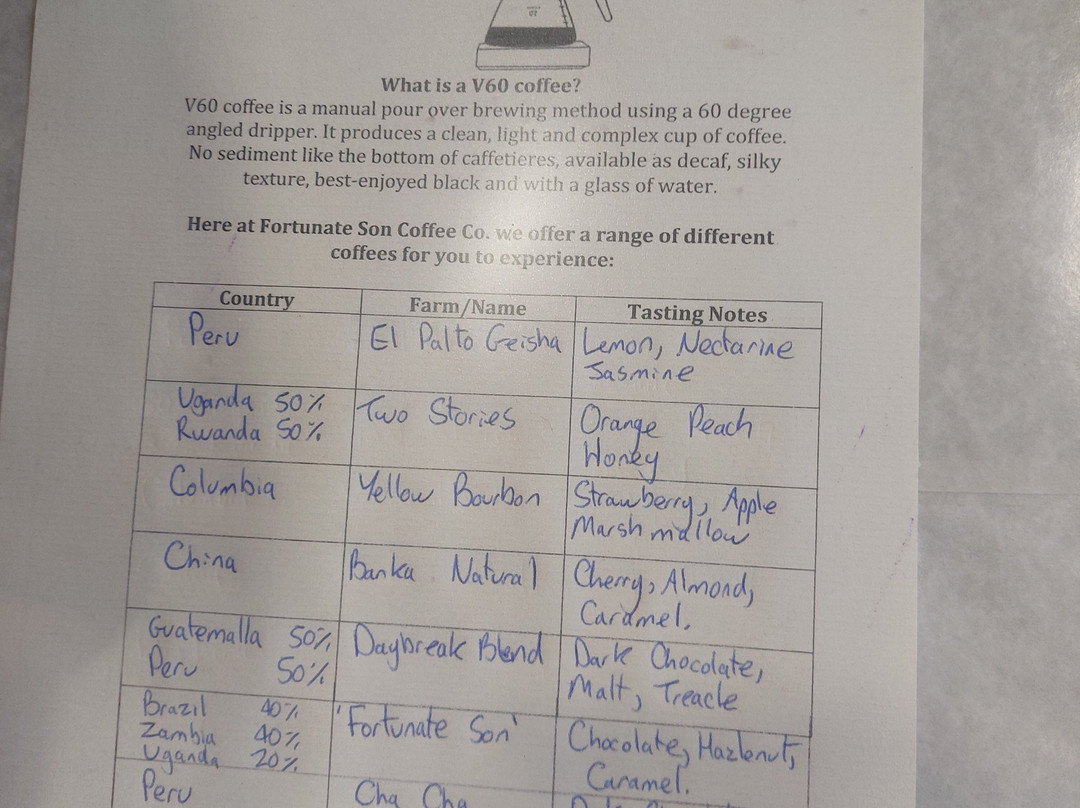 What is a V60 coffee?
V60 coffee is a manual pour over brewing method using a 60 degree
angled dripper. It produces a clean, light and complex cup of coffee.
No sediment like the bottom of caffetieres, available as decaf, silky
texture, best-enjoyed black and with a glass of water.
Here at Fortunate Son Coffee Co. we offer a range of different
coffees for you to experience:
Country Farm/Name Tasting Notes
Peru El Palto Geisha Lemon, Nectarine
Jasmine
Uganda 50% Two Stories Orange Peach
Rwanda 50% Honey
Columbia Yellow Bourbon Strawberry, Apple
Marshmallow
China Banka Natural Cherry, Almond,
Caramel.
Guatemalla 50% Daybreak Blend Dark Chocolate,
Peru 50% Malt, Treacle
Brazil 40% 'Fortunate Son' Chocolate, Hazlenut,
Zambia 40% Caramel.
Uganda 20%
Peru Cha Cha